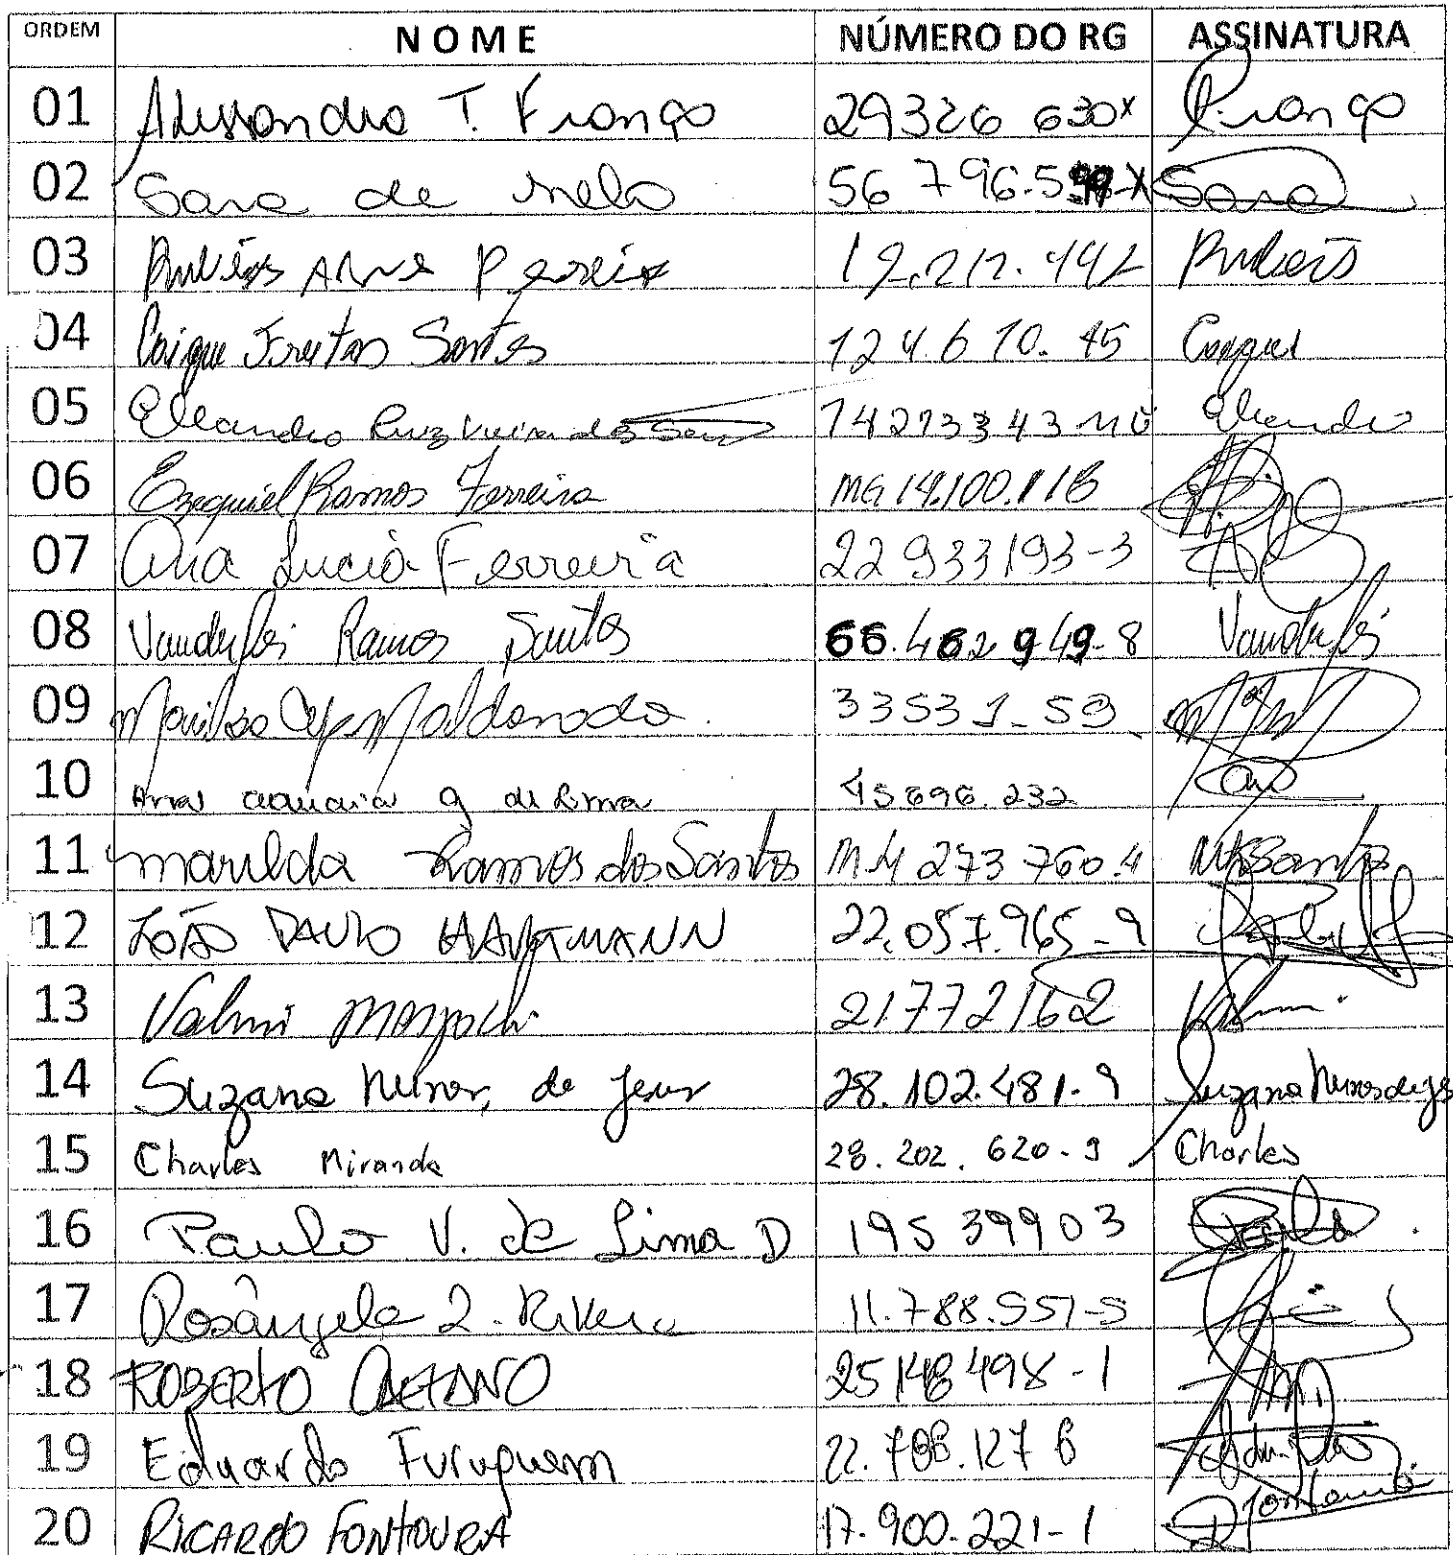 ORDEM NOME NÚMERO DO RG ASSINATURA
01 Alessandra T. França 29326 630X França
02 Sara de Melo 56 796.5 -X Sara
03 Rubens Alve Pereira Rubens
04 Caique Freitas Santos 124.670.45
05 Eleandro Ruiz Vieira dos 14273343 MG Eleandro
06 Ezequiel Ramos Ferreira MG 14.100.118
07 Ana Lucia Ferreira 22 933193-3
08 Vanderlei Ramos Santos 66.462 949-8 Vanderlei
09 Marilsa Ap Maldonado. 33531-59
10 Ana g de Lima 45696.232 Ana
11 marilda Ramos dos Santos M.M 273 760.4 MRSantos
12 JOÃO PAULO HARTMANN 22.057.965-9
13 Valmi 21772162 Valmi
14 Suzana Nunes de Jesus 28.102.481-9 Suzana Nunes de Jes
15 Charles Miranda 28.202.620-9 Charles
16 Paulo V. de Lima D 195 39903 Paulo
17 Rosângela 2. 11.788.557-5
18 ROBERTO CAETANO 25148498-1
19 Eduardo Furuguem 22.708.127 6
20 RICARDO FONTOURA 17.900.221-1 Fontoura